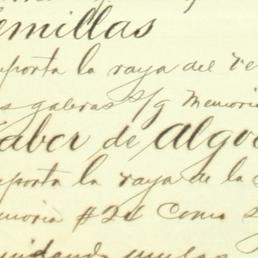 emillas
porta la raya del ve
s galeras s/g Memori
abor de algo
porta la raya de la
moria #24 como s
uidando mulas